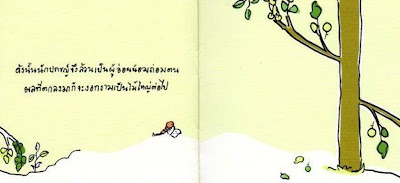 ดังนั้นนักปราชญ์จึงล้วนเป็นผู้อ่อนน้อมถ่อมตน
ผลที่ตกลงมาก็จะงอกงามเป็นไม้ใหญ่ต่อไป